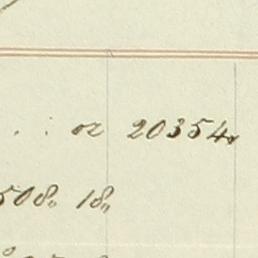 . : or 20354"
508" 18"